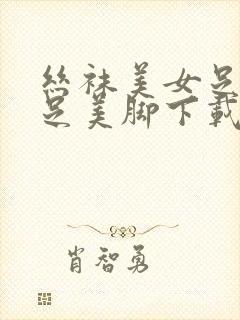 丝袜美女足
足美脚下载
肖智勇